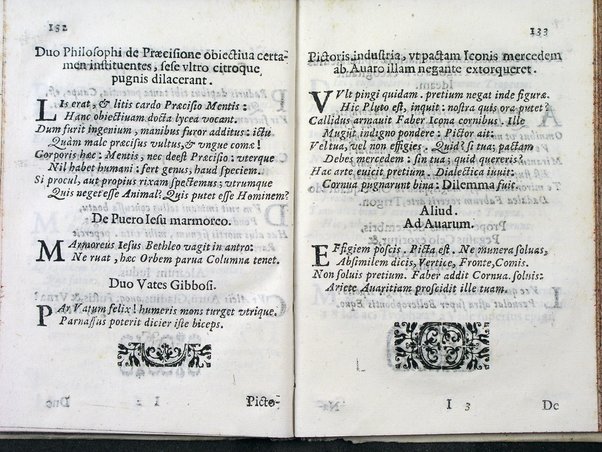 132
Duo Philosophi de Præcisione obiectiua certa-
men instituentes, sese vltro citroque
pugnis dilacerant.
LIs erat, & litis cardo Præcisio Mentis:
Hanc obiectiuam docta lycea vocant.
Dum furit ingenium, manibus furor additus: ictu
Quàm malè præcisus vultus, & vngue coma!
Corporis hæc: Mentis, nec deest Præcisio: vterque
Nil habet humani: fert genus, haud speciem.
Si procul, aut propius rixam spectemus; vtrumque
Quis neget esse Animal? Quis putet esse Hominem?
De Puero Iesu marmoreo.
MArmoreus Iesus Bethleo vagit in antro:
Ne ruat, hæc Orbem parua Columna tenet.
Duo Vates Gibbosi.
PAr Vatum felix! humeris mons turget vtrique.
Parnassus poterit dicier iste biceps.
I 2
Picto-
133
Pictoris industria, vt pactam Iconis mercedem
ab Auaro illam negante extorqueret.
VVlt pingi quidam. pretium negat inde figuræ.
Hic Pluto est, inquit: nostra quis ora putet?
Callidus armauit Faber Icona cornibus. Ille
Mugit indigno pondere: Pictor ait:
Vel tua, vel non effigies. Quid? si tua; pactam
Debes mercedem: sin tua; quid quereris?
Hac arte euicit pretium. Dialectica iuuit:
Cornua pugnarunt bina: Dilemma fuit.
Aliud.
Ad Auarum.
EFfigiem poscis. Picta est. Ne munera soluas,
Absimilem dicis, Vertice, Fronte, Comis.
Non soluis pretium. Faber addit Cornua. soluis:
Ariete Auaritiam proscidit ille tuam.
I 3
De